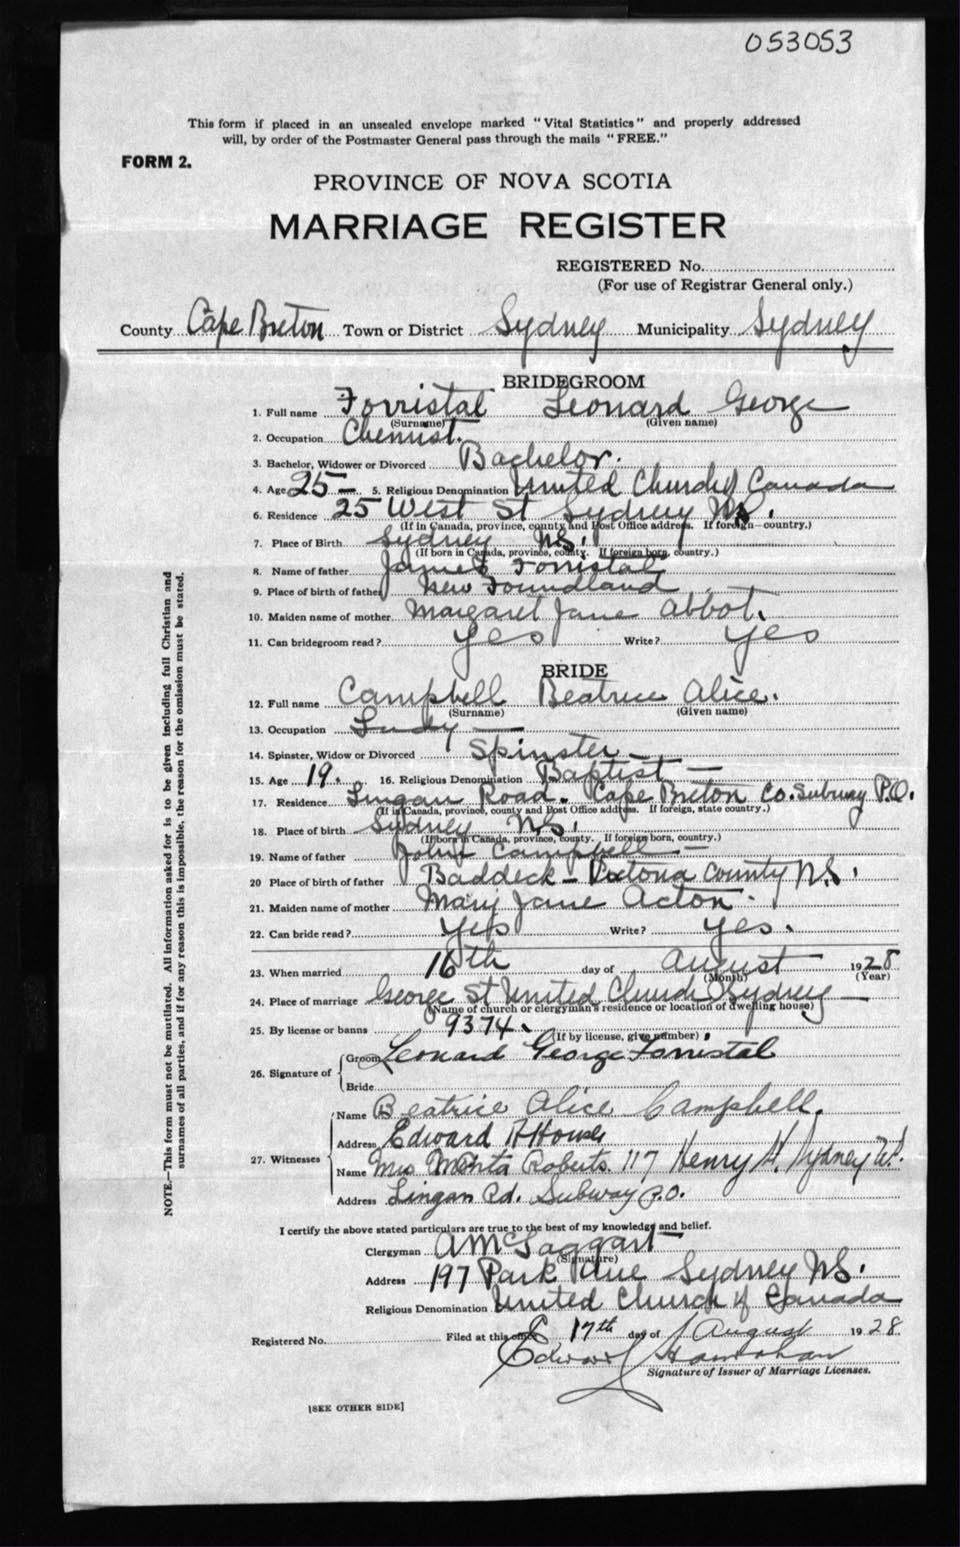 053053
This form if placed in an unsealed envelope marked "Vital Statistics" and properly addressed
will, by order of the Postmaster General pass through the mails "FREE."
FORM 2.
PROVINCE OF NOVA SCOTIA
MARRIAGE REGISTER
REGISTERED No.
(For use of Registrar General only.)
County Cape Breton Town or District Sydney Municipality Sydney
BRIDEGROOM
1. Full name Forristal Leonard George
(Surname) (Given name)
2. Occupation Chemist.
3. Bachelor, Widower or Divorced Bachelor.
4. Age 25 — 5. Religious Denomination United Church of Canada
6. Residence 25 West St Sydney NS.
(If in Canada, province, county and Post Office address. If foreign—country.)
7. Place of Birth Sydney NS.
(If born in Canada, province, county. If foreign born, country.)
8. Name of father James Forristal
9. Place of birth of father New Foundland
10. Maiden name of mother Margaret Jane Abbot.
11. Can bridegroom read? Yes Write? Yes
BRIDE
12. Full name Campbell Beatrice Alice.
(Surname) (Given name)
13. Occupation Lady —
14. Spinster, Widow or Divorced Spinster —
15. Age 19. 16. Religious Denomination Baptist —
17. Residence Lingan Road. Cape Breton Co. Subway P.O.
(If in Canada, province, county and Post Office address. If foreign, state country.)
18. Place of birth Sydney NS.
(If born in Canada, province, county. If foreign born, country.)
19. Name of father John Campbell —
20 Place of birth of father Baddeck — County NS.
21. Maiden name of mother Mary Jane Acton.
22. Can bride read? Yes Write? Yes.
23. When married 16th day of August 1928
(Month) (Year)
24. Place of marriage George St United Church Sydney —
(Name of church or clergyman's residence or location of dwelling house)
25. By license or banns 9374.
(If by license, give number)
26. Signature of Groom Leonard George Forristal
Bride
27. Witnesses Name Beatrice Alice Campbell.
Address Edward Howse
Name Mrs Roberts. 117 Henry St Sydney
Address Lingan Rd. Subway P.O.
I certify the above stated particulars are true to the best of my knowledge and belief.
Clergyman
(Signature)
Address 197 Park Ave Sydney NS.
Religious Denomination United Church of Canada
Registered No. Filed at this office 17th day of August 1928
Edward
Signature of Issuer of Marriage Licenses.
[SEE OTHER SIDE]
NOTE.—This form must not be mutilated. All information asked for is to be given including full Christian and
surnames of all parties, and if for any reason this is impossible, the reason for the omission must be stated.